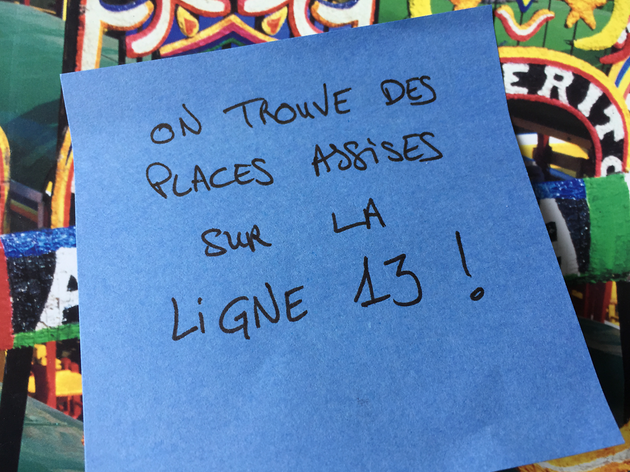 ON TROUVE DES
PLACES ASSISES
SUR LA
LIGNE 13 !
ERITO